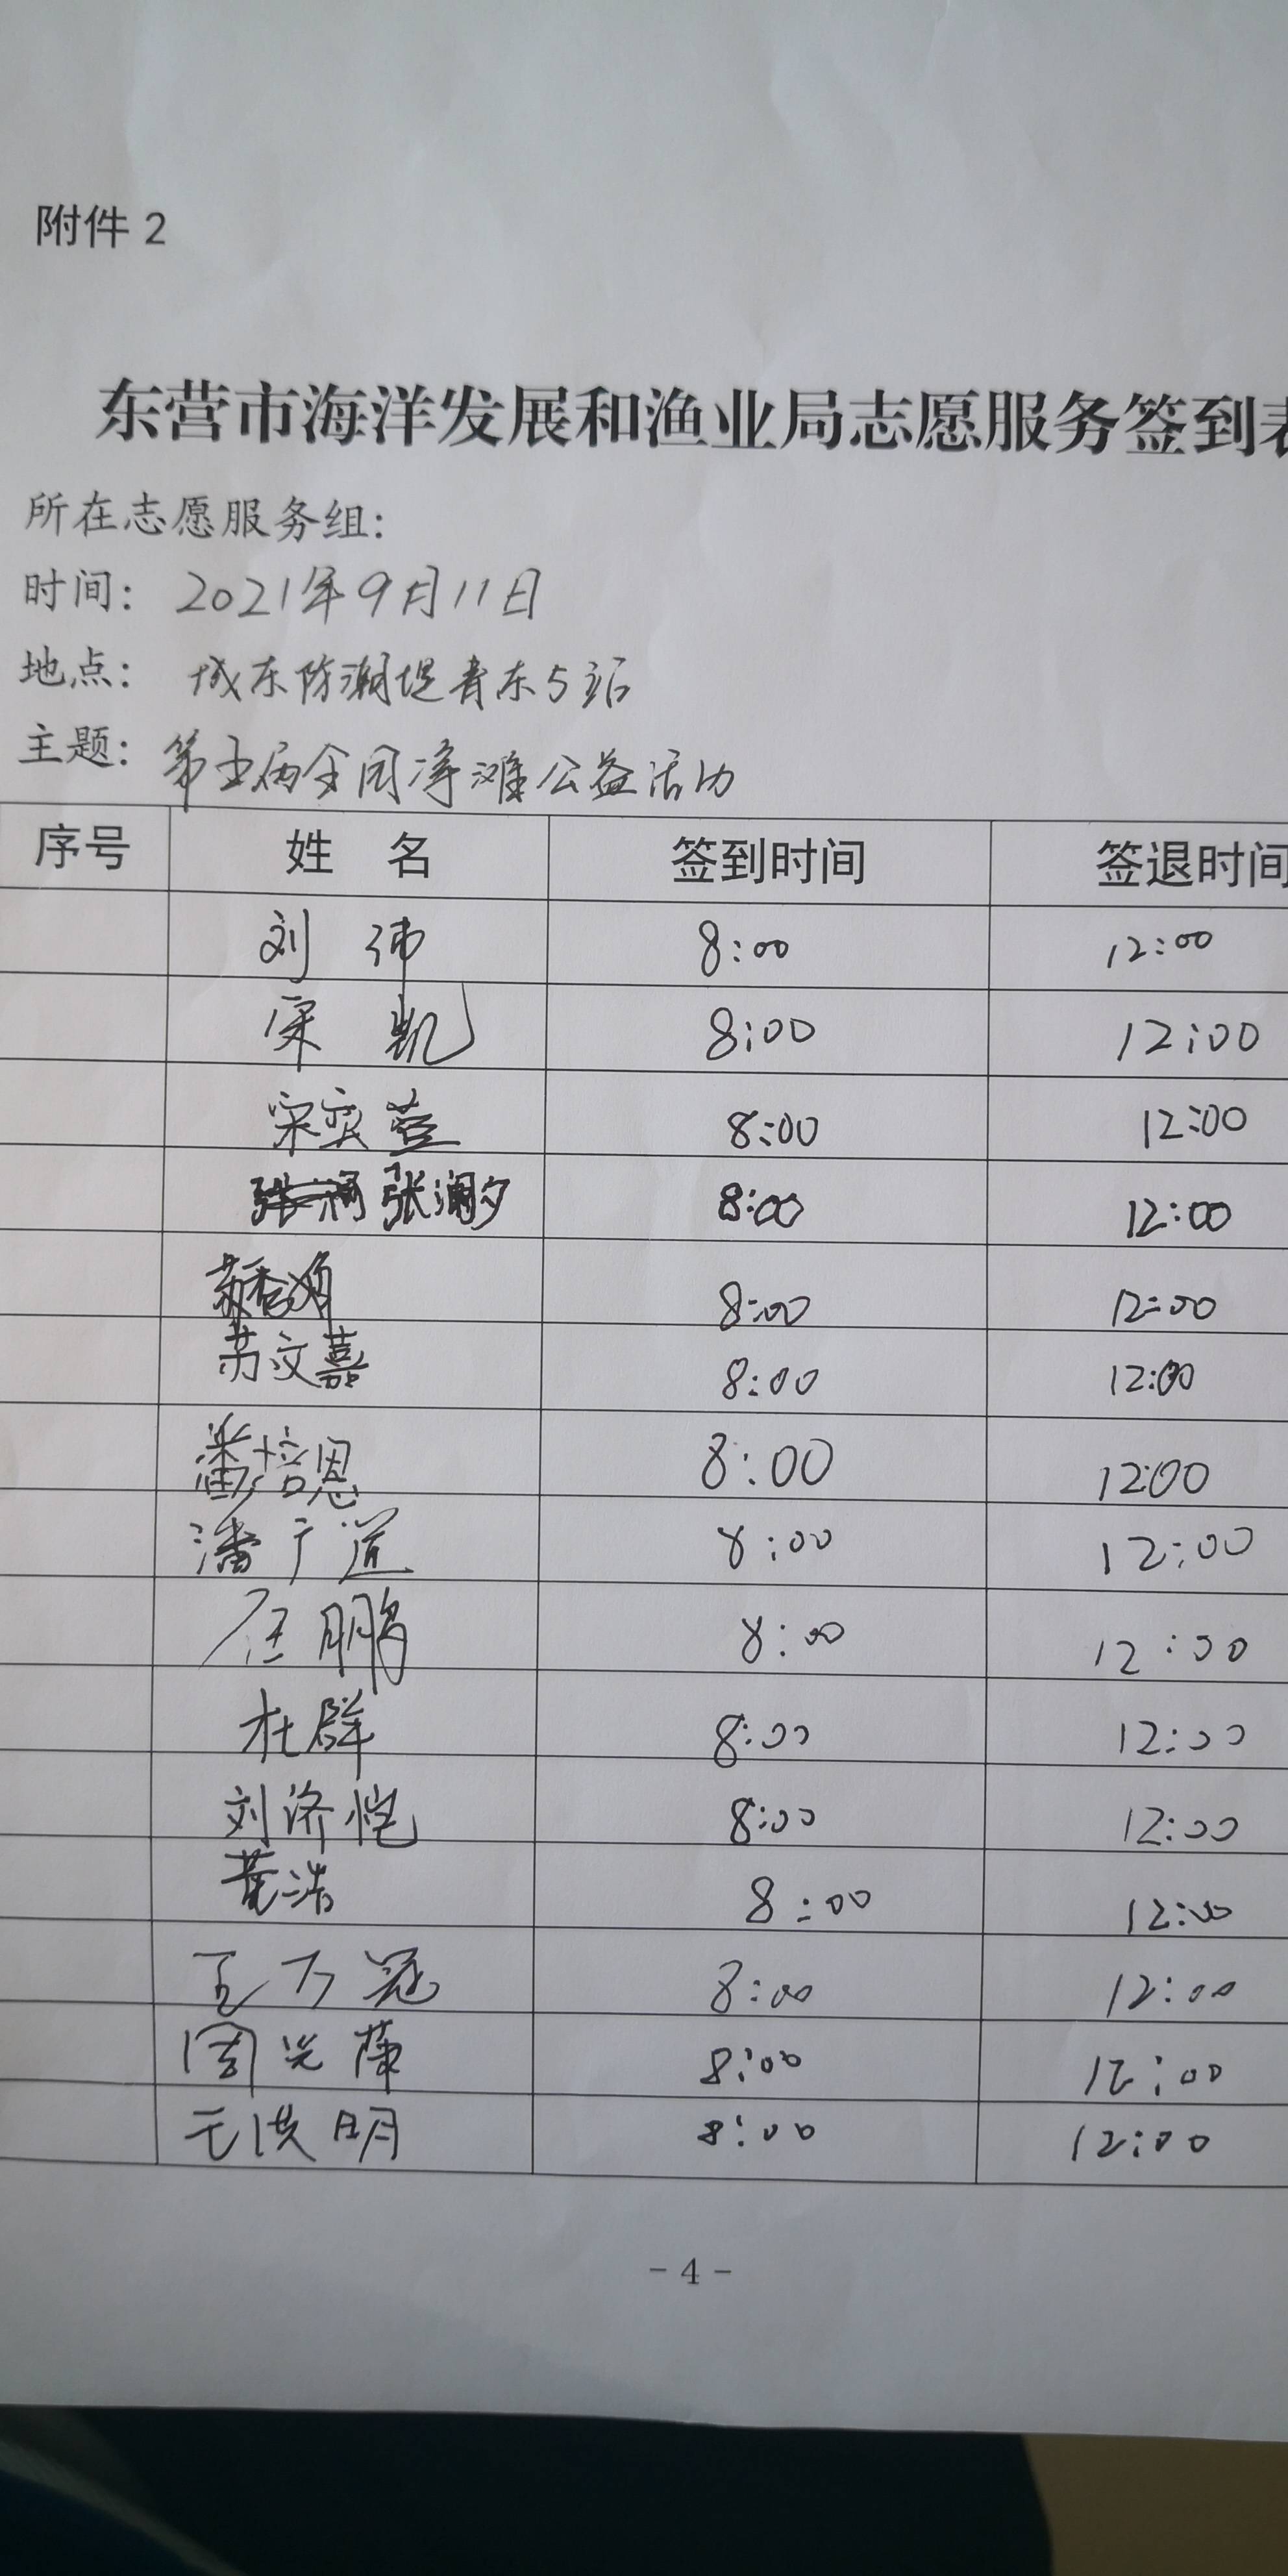 附件 2
东营市海洋发展和渔业局志愿服务签到表
所在志愿服务组:
时间: 2021年9月11日
地点: 城东防潮堤青东5站
主题: 第五届全国净滩公益活动
序号 姓 名 签到时间 签退时间
刘 沛 8:00 12:00
宋 凯 8:00 12:00
宋奕萱 8:00 12:00
张澜夕 8:00 12:00
8:00 12:00
苏文嘉 8:00 12:00
潘培恩 8:00 12:00
潘广道 8:00 12:00
鹏 8:00 12:00
杜群 8:00 12:00
刘济恺 8:00 12:00
浩 8:00 12:00
王乃冠 8:00 12:00
周光荣 8:00 12:00
洪明 8:00 12:00
- 4 -